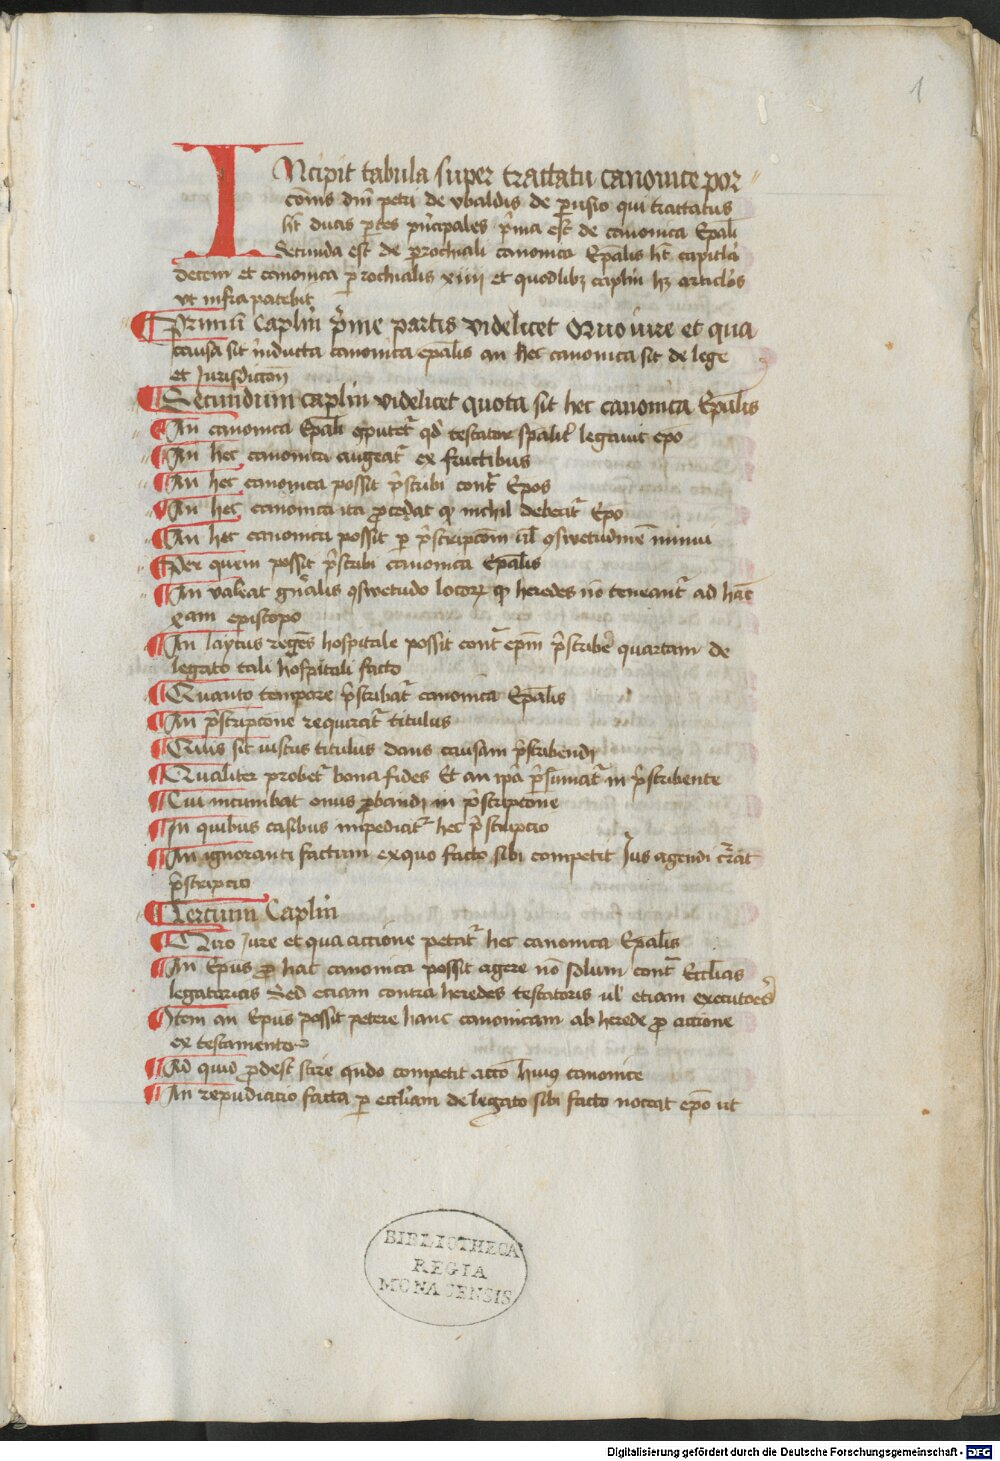 1
INcipit tabula super tractatu canonice por-
cõnis dñi petri de vbaldis de perusio qui tractatus
ht duas ptes pñcipales prima est de canonica Epali
Secunda est de prochiali canonica Epalis ht capitla
decem et canonica prochialis xiiii et quodlibz caplm hz articlos
vt infra patebit
Primũ Caplm prime partis videlicet Quo iure et qua
causa sit inducta canonica epalis an hec canonica sit de lege
et Jurisdictõn
Secundum caplm videlicet quota sit hec canonica Epalis
An canonica Epali 9putet qd testator spalit legauit epo
An hec canonica augeat ex fructibus
An hec canonica possit pscribi cont Epos
An hec canonica ita procedat qp nichil debeat Epo
An hec canonica possit p pscriptõem ul 9swetudinẽ minui
Per quem possit pscribi canonica Epalis
An valeat gñalis 9swetudo locorz qp heredes nõ teneant ad hãc
qam episcopo
An laycus regẽs hospitale possit cont epm pscribe quartam de
legato tali hospitali facto
Quanto tempore pscribat canonica Epalis
An pscriptõne requirat titulus
Quis sit iustus titulus dans causam pscribendi
Qualiter probet bona fides Et an ipa psumat in pscribente
Cui incumbat onus probandi in pscriptõne
In quibus casibus impediat hec pscriptio
An ignoranti factum exquo facto sibi competit Jus agendi crãt
pscriptio
Tercium Caplm
Quo Jure et qua accione petat hec canonica Epalis
An Epus pro hac canonica possit agere nõ solum cont Ecclias
legatarias Sed etiam contra heredes testatoris ul etiam executoes
Item an Epus possit petere hanc canonicam ab herede pro accione
ex testamento
Ad quid prodest scire qñdo competit actõ huius canonice
An repudiacio facta p eccliam de legato sibi facto noceat epo ut
BIBLIOTHECA
REGIA
MONACENSIS
Digitalisierung gefördert durch die Deutsche Forschungsgemeinschaft - DFG